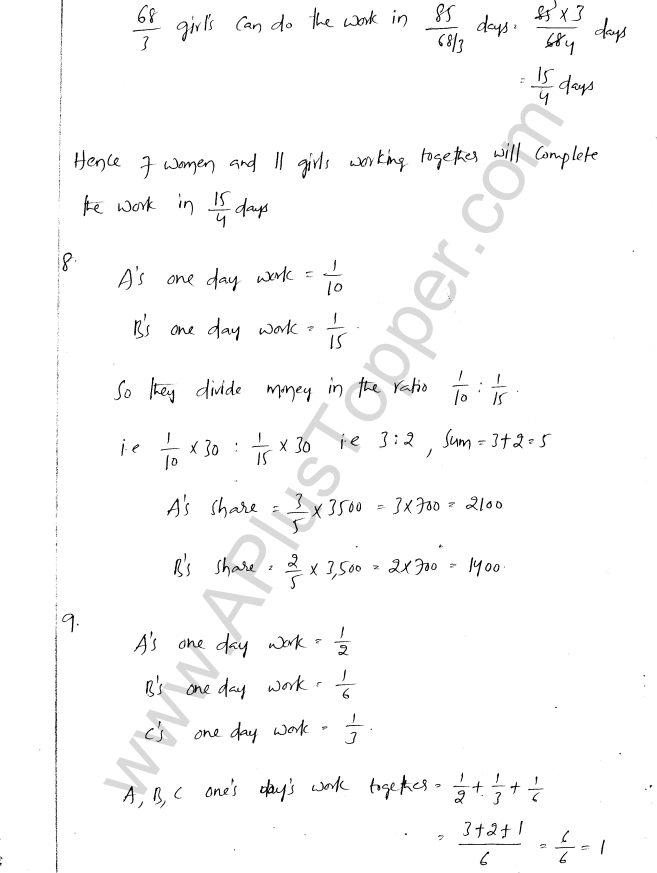 68/3 girls can do the work in 85/(68/3) days = (85 × 3)/(68 4) days
= 15/4 days
Hence 7 women and 11 girls working together will complete
the work in 15/4 days
8.
A's one day work = 1/10
B's one day work = 1/15.
So they divide money in the ratio 1/10 : 1/15.
i.e 1/10 × 30 : 1/15 × 30 i.e 3:2, Sum = 3+2 = 5
A's share = 3/5 × 3500 = 3×700 = 2100
B's share = 2/5 × 3,500 = 2×700 = 1400.
9.
A's one day work = 1/2
B's one day work = 1/6
C's one day work = 1/3.
A, B, C one's day's work together = 1/2 + 1/3 + 1/6
= (3+2+1)/6 = 6/6 = 1
www.APlusTopper.com